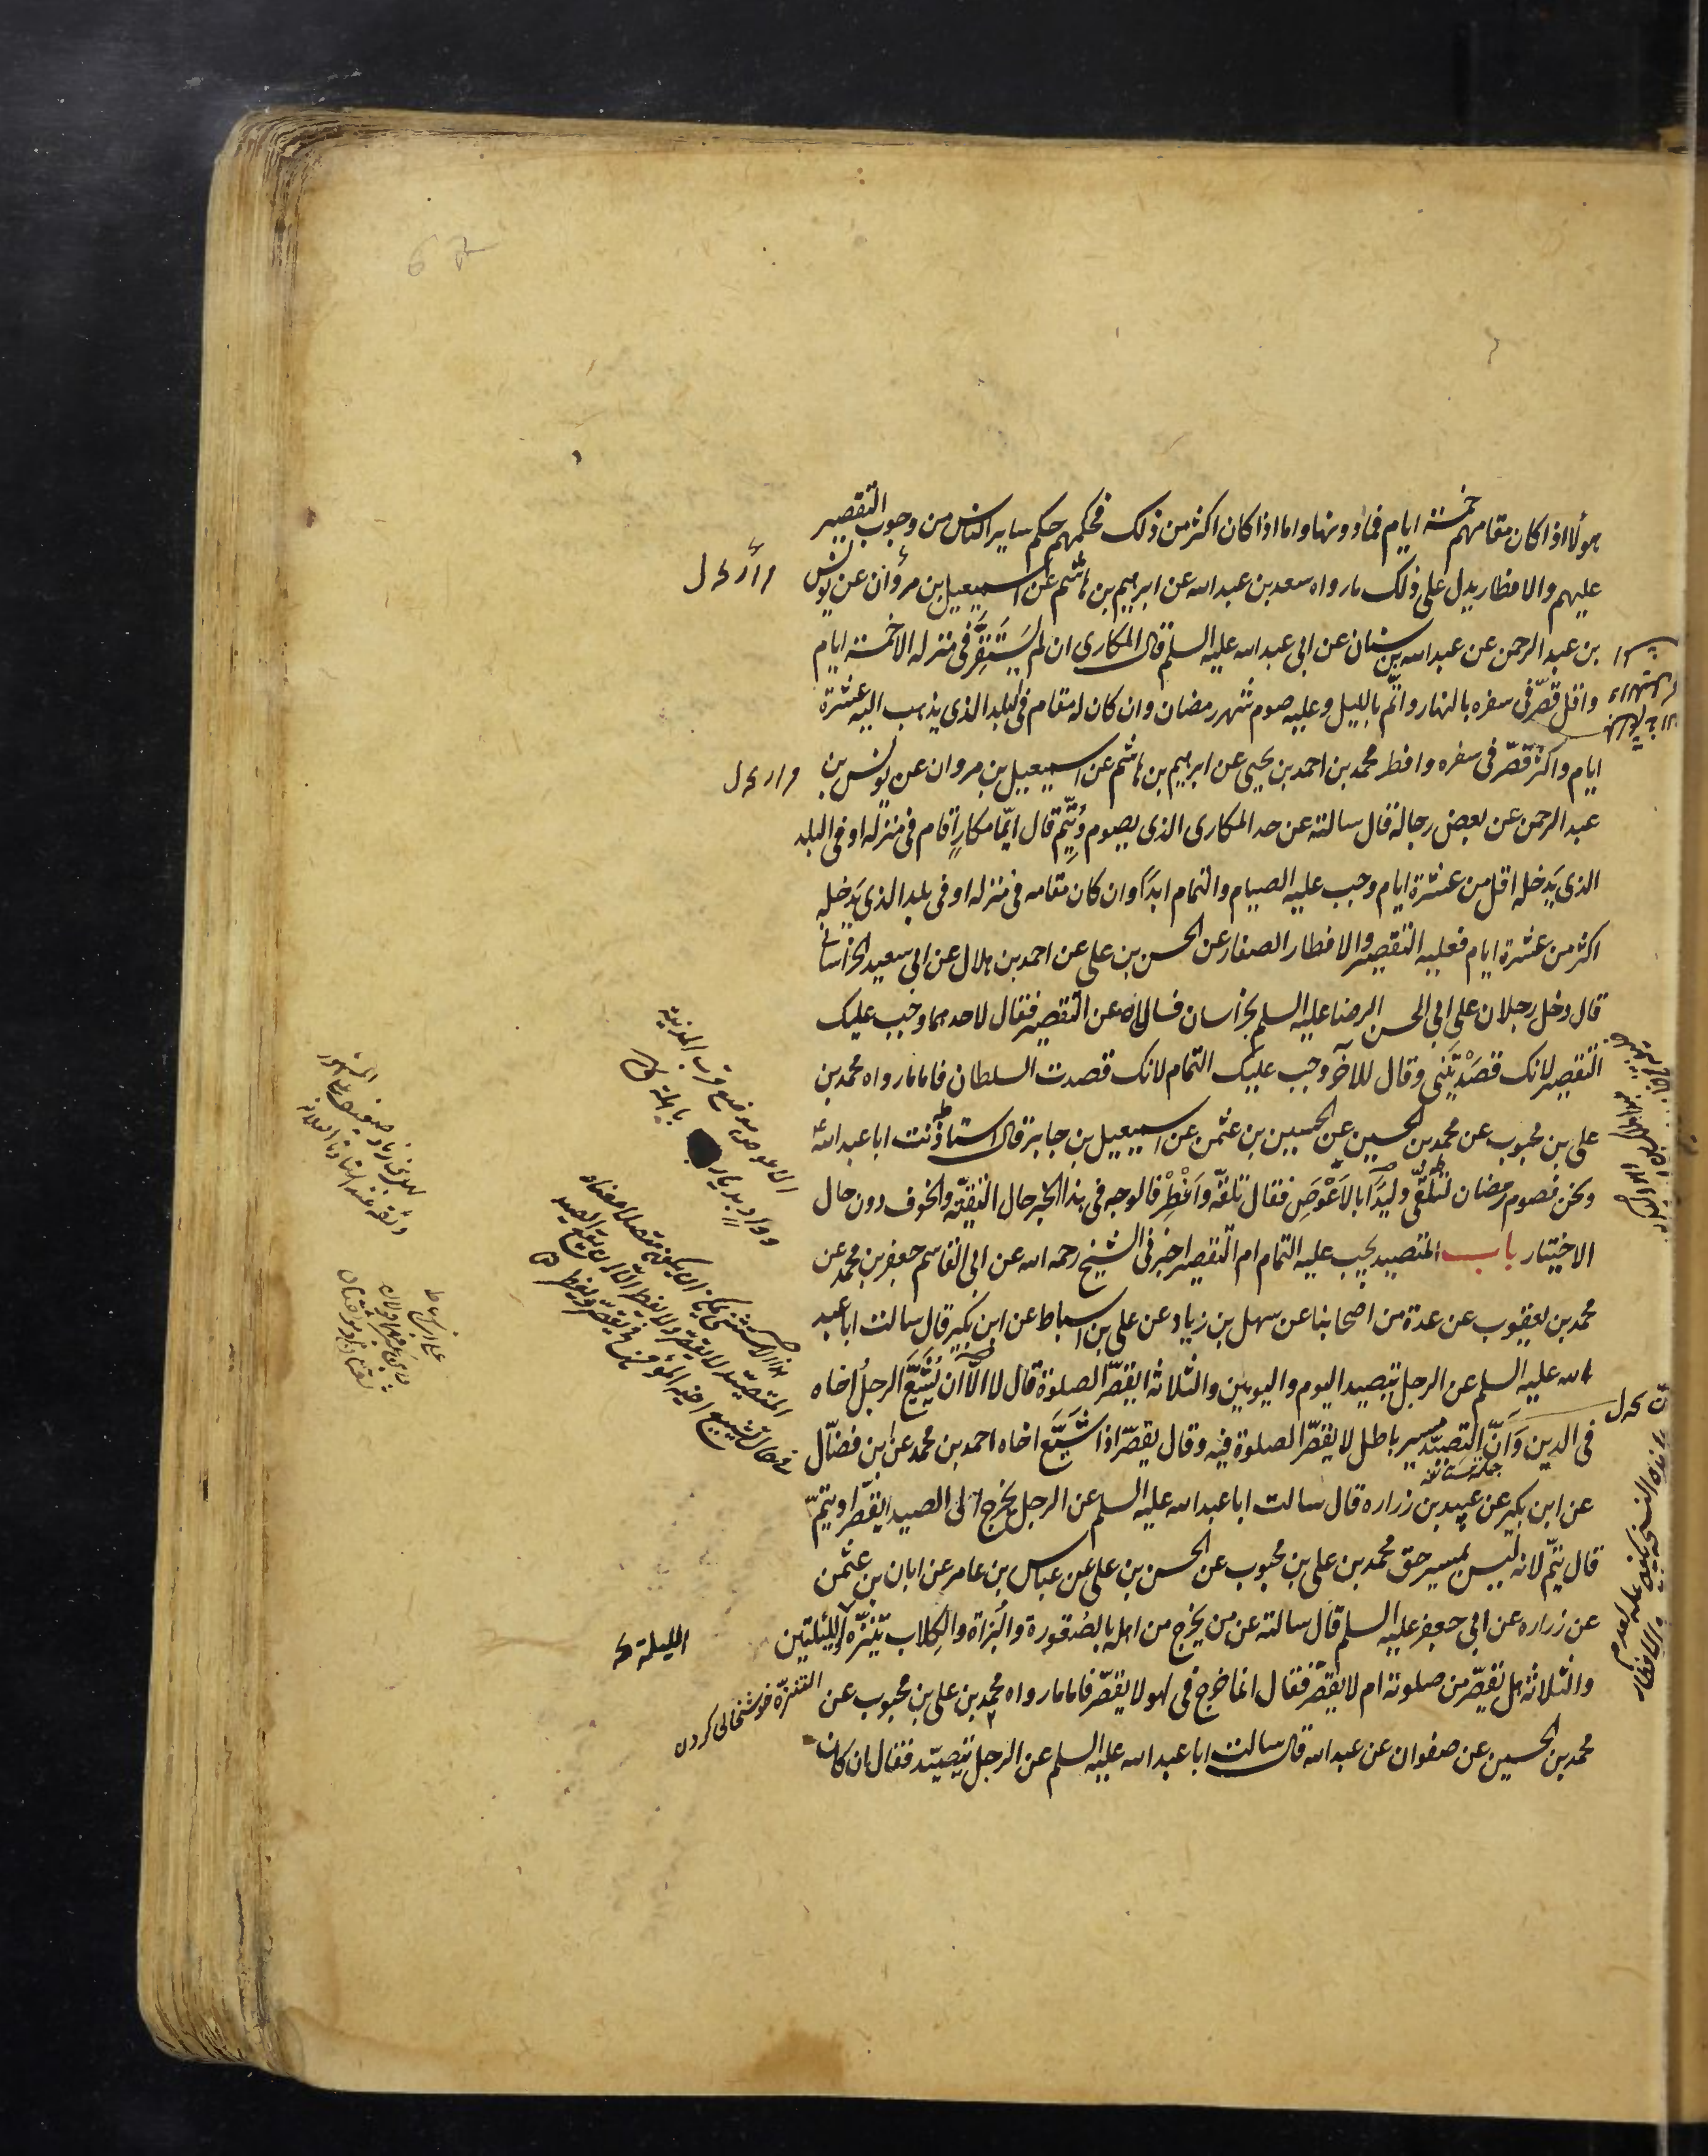 هولاء اذا كان مقامهم خمسة ايام فما دونها واما اذا كان اكثر من ذلك فحكمهم حكم ساير الناس من وجوب التقصير
عليهم والافطار يدل على ذلك ما رواه سعد بن عبد الله عن ابرهيم بن هاشم عن اسمعيل بن مروان عن يونس
بن عبد الرحمن عن عبد الله بن سنان عن ابى عبد الله عليه السلم قال المكارى ان لم يستقر فى منزله الا خمسة ايام
واقل قصّر فى سفره بالنهار واتم بالليل وعليه صوم شهر رمضان وان كان له مقام فى البلد الذى يذهب اليه عشرة
ايام واكثر قصّر فى سفره وافطر محمد بن احمد بن يحيى عن ابرهيم بن هاشم عن اسمعيل بن مروان عن يونس بن
عبد الرحمن عن بعض رجاله قال سالته عن حد المكارى الذى يصوم ويُتِمّ قال ايّما مكارٍ اقام فى منزله او فى البلد
الذى يَدخله اقل من عشرة ايام وجب عليه الصيام والتمام ابدًا وان كان مقامه فى منزله او فى بلد الذى يَدخله
اكثر من عشرة ايام فعليه التقصير والافطار الصفار عن الحسن بن على عن احمد بن هلال عن ابى سعيد الخراسانى
قال دخل رجلان على ابى الحسن الرضا عليه السلم بخراسان فسالاه عن التقصير فقال لاحدهما وجب عليك
التقصير لانك قصَدْتَنى وقال للآخر وجب عليك التمام لانك قصدت السلطان فاما ما رواه محمد بن
على بن محبوب عن محمد بن الحسين عن الحسين بن عثمن عن اسمعيل بن جابر قال استاذنت ابا عبد الله ع
ونحن نصوم رمضان لنلقى وليدًا بالاَعْوَصِ فقال تلقّه واَفْطِرْ فالوجه فى هذا الخبر حال التقيّة والخوف دون حال
الاختيار باب المتصيد يجب عليه التمام ام التقصير اخبرنى الشيخ رحمه الله عن ابى القاسم جعفر بن محمد عن
محمد بن يعقوب عن عدة من اصحابنا عن سهل بن زياد عن على بن اسباط عن ابن بكير قال سالت ابا عبد
الله عليه السلم عن الرجل يتصيد اليوم واليومين والثلاثة ايقصّر الصلوة قال لا الّا ان يُشَيّعَ الرجلُ اخاه
فى الدين وَاَنّ التصيّد مسير باطل لا يقصّر الصلوة فيه وقال يقصّر اذا شَيّعَ اخاه احمد بن محمد عن ابن فضّال
جملة مستانفة
عن ابن بكير عن عبيد بن زراره قال سالت ابا عبد الله عليه السلم عن الرجل يخرج الى الصيد ايقصّر او يتمّ
قال يتمّ لانه ليس بمسير حق محمد بن على بن محبوب عن الحسن بن على عن عباس بن عامر عن ابان بن عثمن
عن زراره عن ابى جعفر عليه السلم قال سالته عن من يخرج من اهله بالصُقورة والبُزاة والكِلاب يتنزّه الليلتين
والثلاثة هل يقصّر من صلوته ام لا يقصّر فقال انما خرج فى لهو لا يقصّر فاما ما رواه محمد بن على بن محبوب عن
محمد بن الحسين عن صفوان عن عبد الله قال سالت ابا عبد الله عليه السلم عن الرجل يتصيّد فقال ان كان
الاعوص موضع قرب المدينة
الليلة
التنزّه خوشخالى كردن